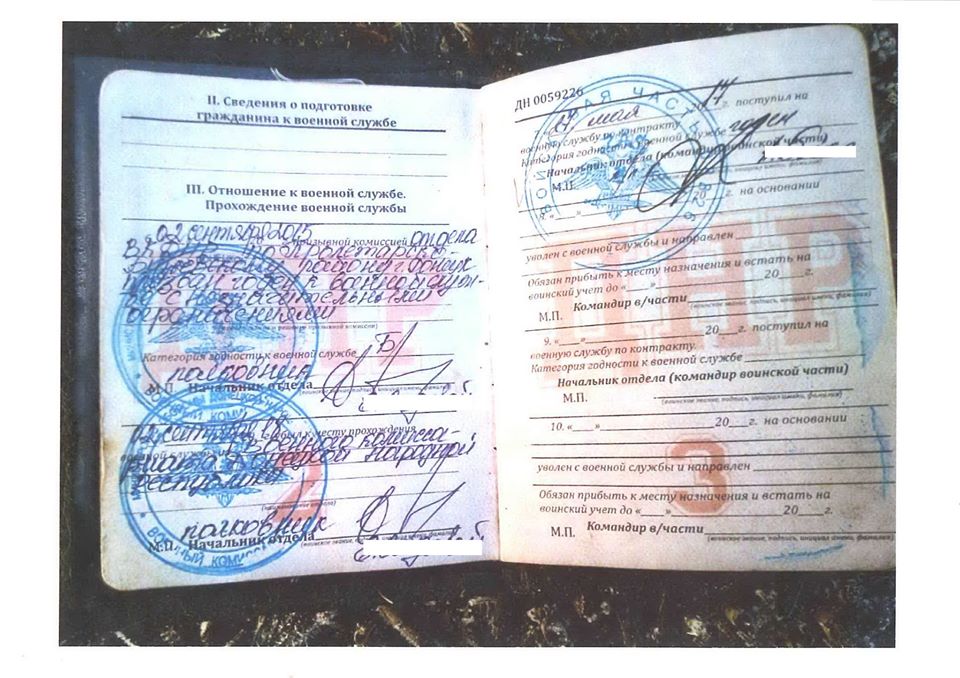 II. Сведения о подготовке
гражданина к военной службе
III. Отношение к военной службе.
Прохождение военной службы
02 сентября 2015
призывной комиссией отдела
годен к военной
с незначительными
ограничениями
Категория годности к военной службе Б
полковник
М.П. Начальник отдела
02 сентября
к месту прохождения
военного комисса-
риата Донецкой Народной
Республики
полковник
М.П. Начальник отдела
ВОЕННЫЙ КОМИС
ДН 0059226
ВОЙСКОВАЯ ЧАСТЬ
7. «27» мая 2017 г. поступил на
военную службу по контракту
Категория годности к военной службе годен
Начальник отдела (командир воинской части)
М.П.
20___г. на основании
уволен с военной службы и направлен
Обязан прибыть к месту назначения и встать на
воинский учет до «___» 20___г.
Командир в/части
М.П. (воинское звание, подпись, инициал имени, фамилия)
9. «___» 20___г. поступил на
военную службу по контракту.
Категория годности к военной службе
Начальник отдела (командир воинской части)
М.П. (воинское звание, подпись, инициал имени, фамилия)
10. «___» 20___г. на основании
уволен с военной службы и направлен
Обязан прибыть к месту назначения и встать на
воинский учет до «___» 20___г.
М.П. Командир в/части
(воинское звание, подпись, инициал имени, фамилия)
ДНР
2
3